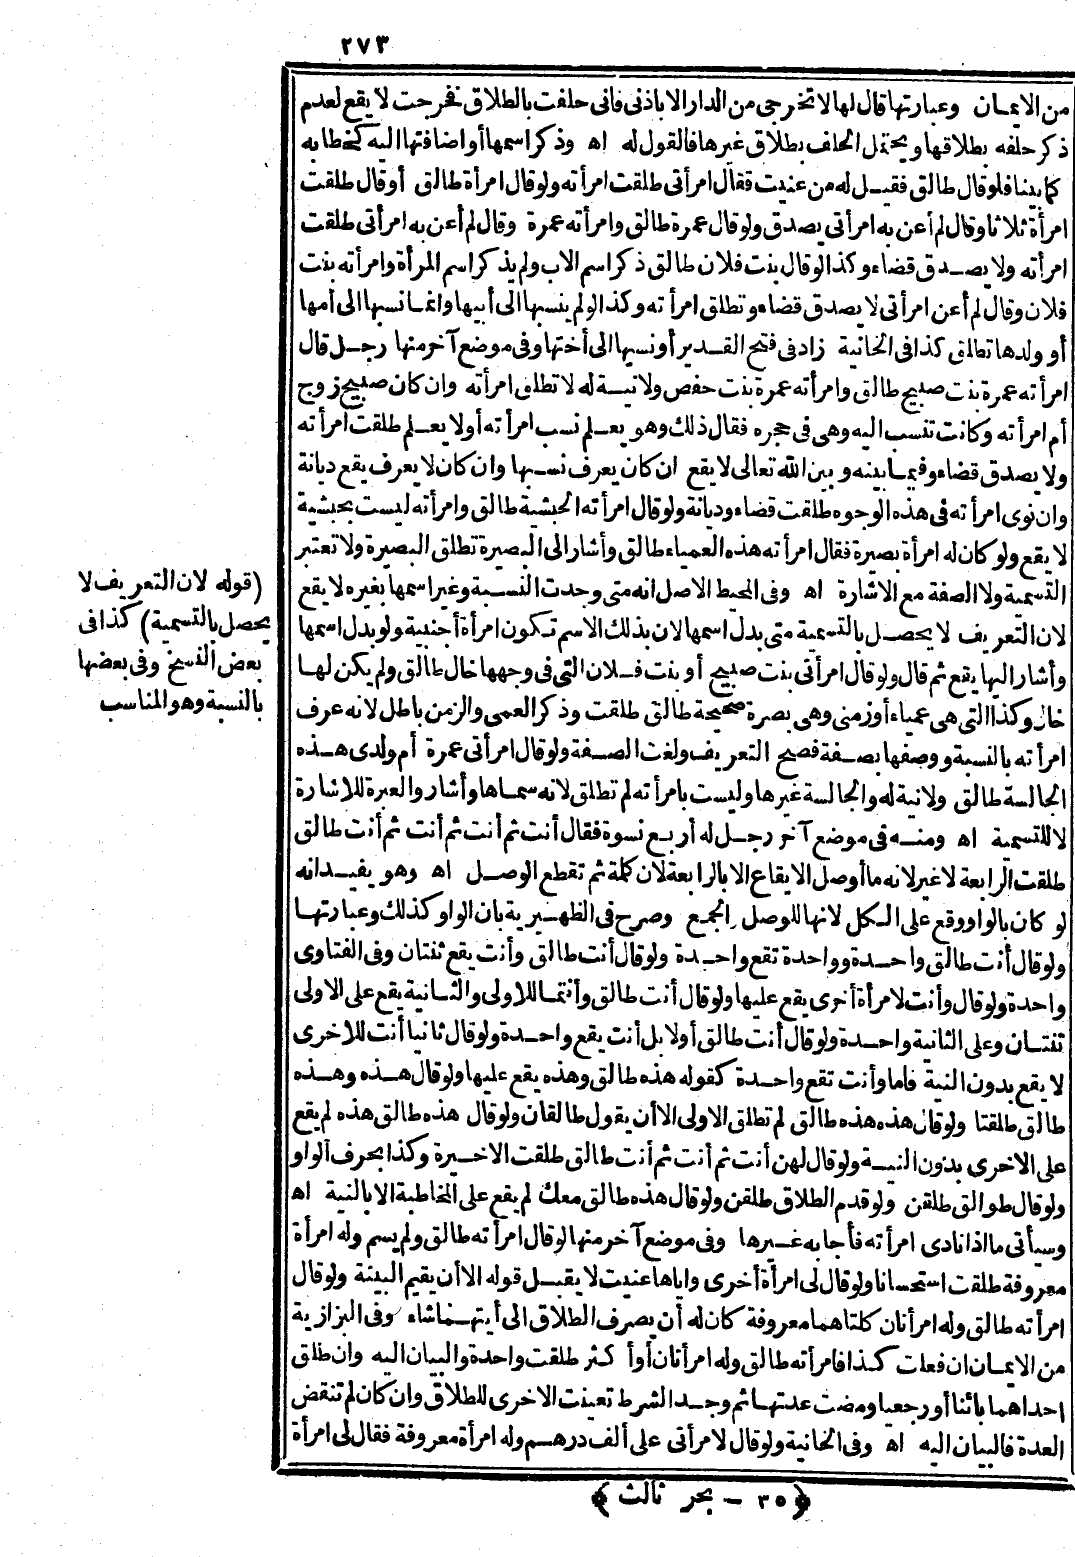 ٢٧٣
من الايمان وعبارتها قال لها لا تخرجي من الدار الا باذني فاني حلفت بالطلاق فخرجت لا يقع لعدم
ذكر حلفه بطلاقها ويحتمل الحلف بطلاق غيرها فالقول له اه وذكر اسمها أو اضافتها اليه كخطابه
كما بينا فلو قال طالق فقيل له من عنيت فقال امرأتي طلقت امرأته ولو قال امرأة طالق أو قال طلقت
امرأة ثلاثا وقال لم أعن به امرأتي يصدق ولو قال عمرة طالق وامرأته عمرة وقال لم أعن به امرأتي طلقت
امرأته ولا يصدق قضاء وكذا لو قال بنت فلان طالق ذكر اسم الاب ولم يذكر اسم المرأة وامرأته بنت
فلان وقال لم أعن امرأتي لا يصدق قضاء وتطلق امرأته وكذا لو لم ينسبها الى أبيها وانما نسبها الى أمها
أو ولدها تطلق كذا في الخانية زاد في فتح القدير أو نسبها الى أختها وفي موضع آخر منها رجل قال
امرأته عمرة بنت صبيح طالق وامرأته عمرة بنت حفص ولا نية له لا تطلق امرأته وان كان صبيح زوج
أم امرأته وكانت تنسب اليه وهي في حجره فقال ذلك وهو يعلم نسب امرأته أو لا يعلم طلقت امرأته
ولا يصدق قضاء وفيما بينه وبين الله تعالى لا يقع ان كان يعرف نسبها وان كان لا يعرف يقع ديانة
وان نوى امرأته في هذه الوجوه طلقت قضاء وديانة ولو قال امرأته الحبشية طالق وامرأته ليست بحبشية
لا يقع ولو كان له امرأة بصيرة فقال امرأته هذه العمياء طالق وأشار الى البصيرة تطلق البصيرة ولا تعتبر
التسمية ولا الصفة مع الاشارة اه وفي المحيط الاصل انه متى وجدت النسبة وغير اسمها بغيره لا يقع
لان التعريف لا يحصل بالتسمية متى بدل اسمها لان بذلك الاسم تكون امرأة أجنبية ولو بدل اسمها
وأشار اليها يقع ثم قال ولو قال امرأتي بنت صبيح أو بنت فلان التي في وجهها خال طالق ولم يكن لها
خال وكذا التي هي عمياء أو زمني وهي بصرة صحيحة طالق طلقت وذكر العمى والزمن باطل لانه عرف
امرأته بالنسبة ووصفها بصفة فصح التعريف ولغت الصفة ولو قال امرأتي عمرة أم ولدي هذه
الجالسة طالق ولا نية له والجالسة غيرها وليست بامرأته لم تطلق لانه سماها وأشار والعبرة للاشارة
لا للتسمية اه ومنه في موضع آخر رجل له أربع نسوة فقال أنت ثم أنت ثم أنت ثم أنت طالق
طلقت الرابعة لا غير لانه ما أوصل الايقاع الا بالرابعة لان كلمة ثم تقطع الوصل اه وهو يفيد انه
لو كان بالواو وقع على الكل لانها للوصل الجمع وصرح في الظهيرية بان الواو كذلك وعبارتها
ولو قال أنت طالق واحدة وواحدة تقع واحدة ولو قال أنت طالق وأنت يقع ثنتان وفي الفتاوى
واحدة ولو قال وأنت لامرأة أخرى يقع عليها ولو قال أنت طالق وأنتما للاولى والثانية يقع على الاولى
ثنتان وعلى الثانية واحدة ولو قال أنت طالق أو لا بل أنت يقع واحدة ولو قال ثانيا أنت للاخرى
لا يقع بدون النية فاما وأنت تقع واحدة كقوله هذه طالق وهذه يقع عليها ولو قال هذه وهذه
طالق طلقتا ولو قال هذه هذه طالق لم تطلق الاولى الا أن يقول طالقان ولو قال هذه طالق هذه لم يقع
على الاخرى بدون النية ولو قال لهن أنت ثم أنت ثم أنت طالق طلقت الاخيرة وكذا بحرف الواو
ولو قال طوالق طلقن ولو قدم الطلاق طلقن ولو قال هذه طالق معك لم يقع على المخاطبة الا بالنية اه
وسيأتي ما اذا نادى امرأته فأجابه غيرها وفي موضع آخر منها لو قال امرأته طالق ولم يسم وله امرأة
معروفة طلقت استحسانا ولو قال لي امرأة أخرى واياها عنيت لا يقبل قوله الا أن يقيم البينة ولو قال
امرأته طالق وله امرأتان كلتاهما معروفة كان له أن يصرف الطلاق الى أيتهما شاء وفي البزازية
من الايمان ان فعلت كذا فامرأته طالق وله امرأتان أو أكثر طلقت واحدة والبيان اليه وان طلق
احداهما بائنا أو رجعيا ومضت عدتها ثم وجد الشرط تعينت الاخرى للطلاق وان كان لم تنقض
العدة فالبيان اليه اه وفي الخانية ولو قال لامرأتي على ألف درهم وله امرأة معروفة فقال لي امرأة
(قوله لان التعريف لا
يحصل بالتسمية) كذا في
بعض النسخ وفي بعضها
بالنسبة وهو المناسب
﴿٣٥ - بحر ثالث﴾